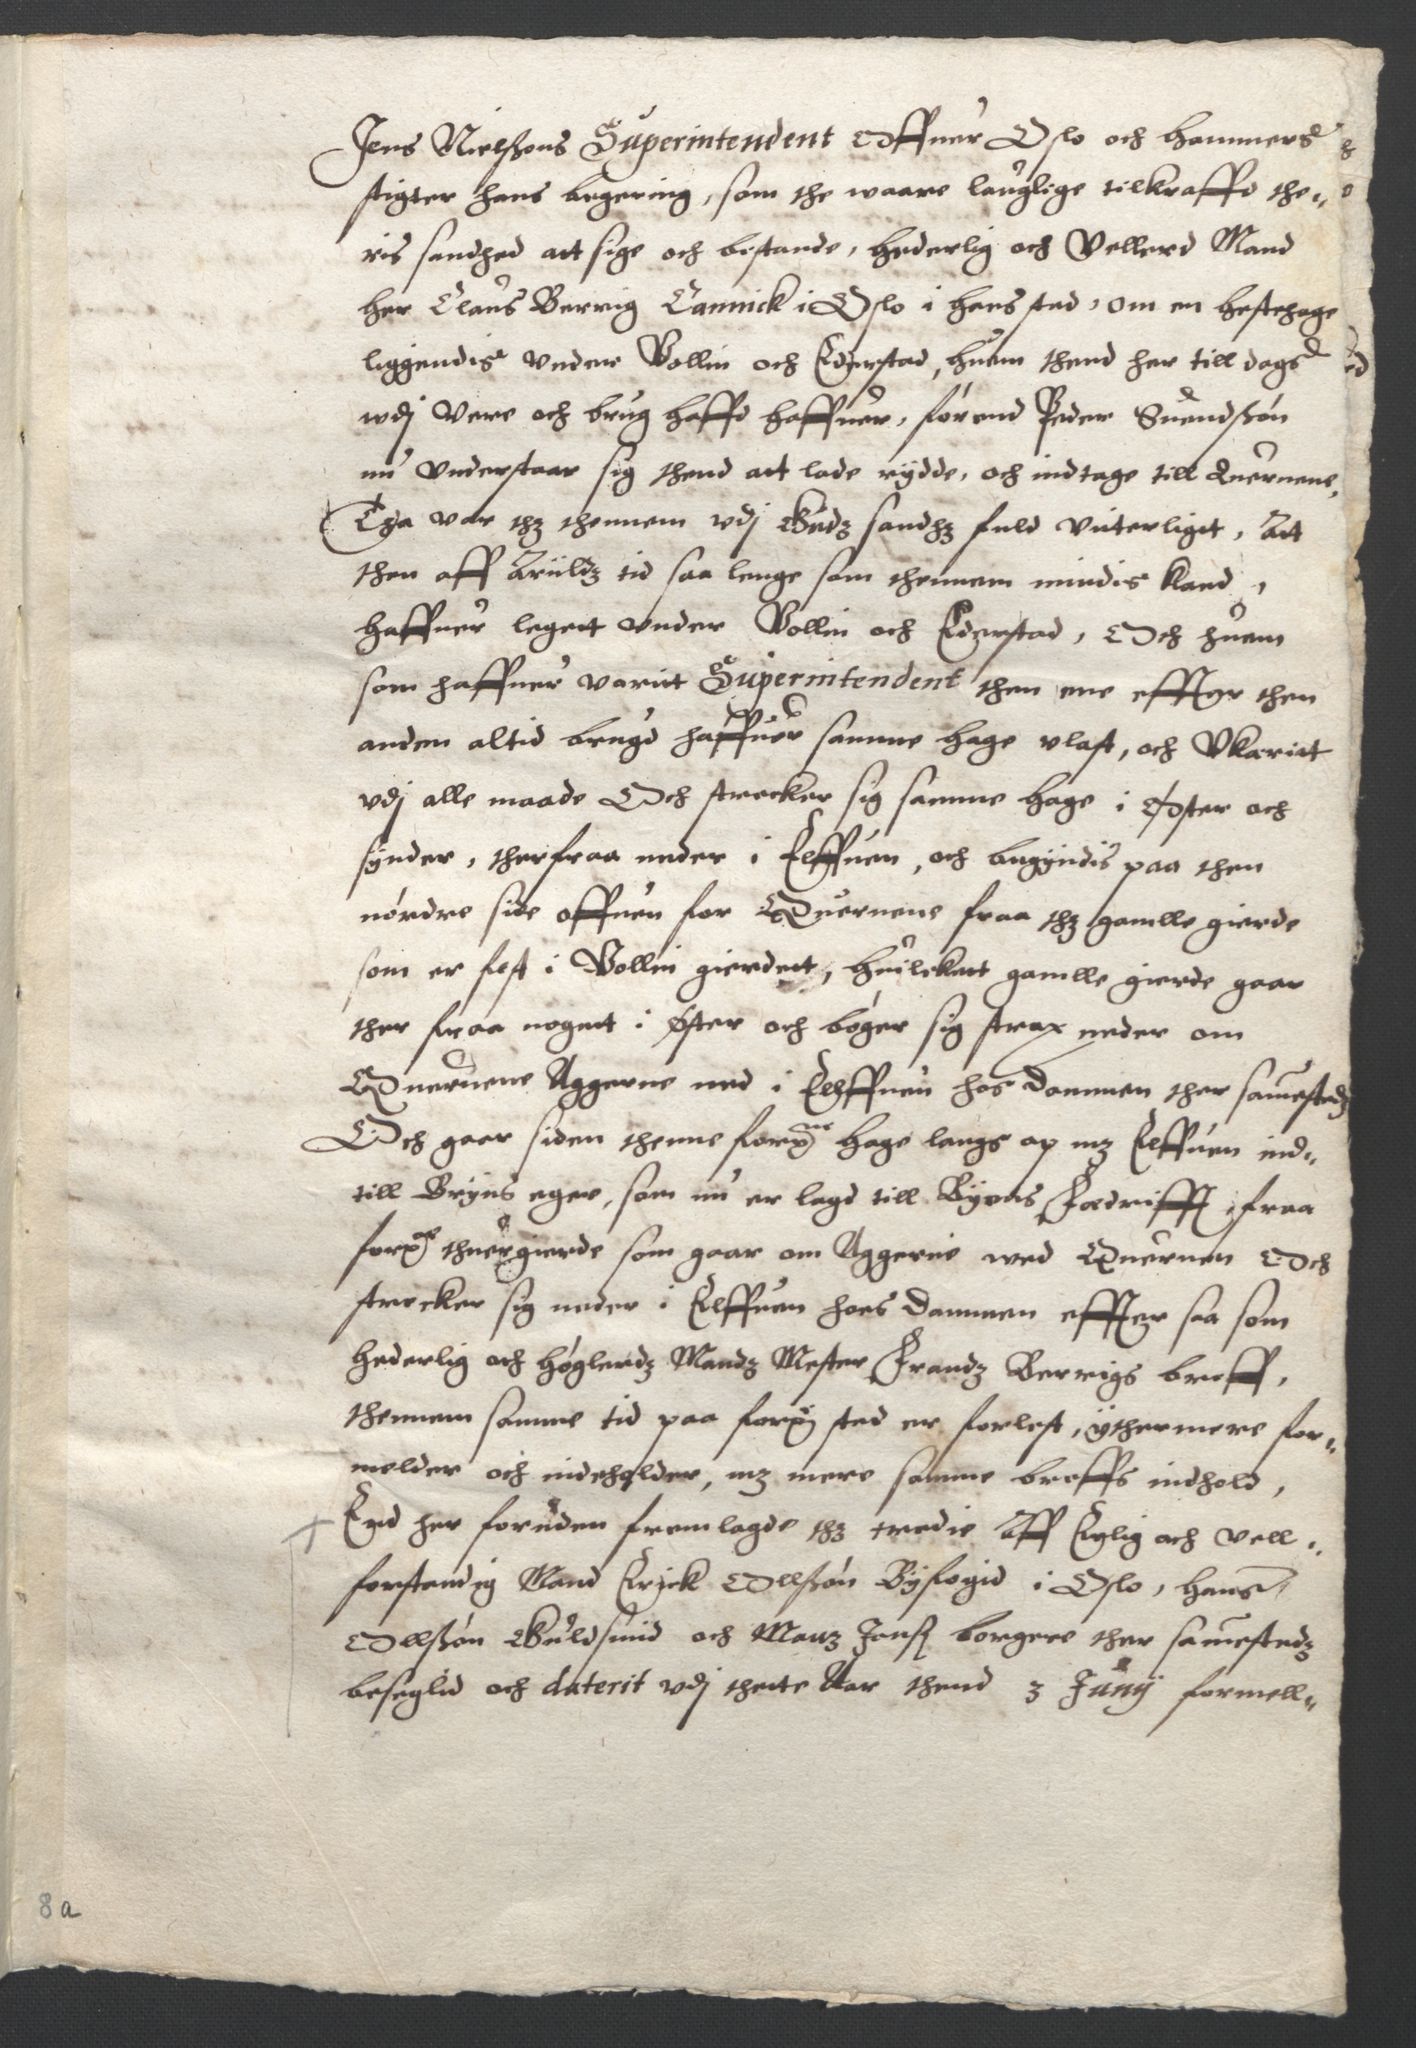 Jens Nielßons Superintendent Offuer Oslo och Hammers
stigter hans begering, som the waare lauglige tilkraffd the„
ris sandhed att sige och bestande, hederlig och Vellerd Mand
her Claus Berrig Cannick i Oslo i hans stad, om en hestehage
liggendis vnder Vollin och Ederstad, huem thend her till dags
wdj vere och brug hafft haffuer, førend Peder Suendßøn
nu vnderstaar sig thend att lade rydde, och indtage till Quernene,
Tha var thz thennem vdj Gudz sandhz fuld vitterligt, Att
then aff Arildz tid saa lenge som thennem mindis kand,
haffuer legett vnder Vollin och Ederstad, Och huem
som haffuer varit Superintendent then ene effter then
anden altid brugd haffuer samme hage vlast, och Vkæriit
vdj alle maade Och strecker sig samme hage i Øster och
synder, therfraa neder i Elffuen, och begyndis paa then
nørdre side offuen for Quernene fraa thz gamlle gierde
som er fest i Vollin gierdett, huilckett gamlle gierde gaar
ther fraa nogett i Øster och bøger sig strax neder om
Quernene Aggerne ned i Elffuen hos Dammen ther samestedz
Och gaar siden thenne forne hage langs op mz Elffuen ind„
till Bryns eger, som nu er lagd till Byens Fædrifft, fraa
forne thuergierde som gaar om Aggerne wed Quernen Och
strecker sig neder i Elffuen hoes Dammen effter saa som
hederlig och høglerdz Mandz Mester Frandz Berrigs breff,
thennem samme tid paa forne sted er forlest, ythermere for„
melder och indeholder, mz mere samme breffs indhold,
End her foruden fremlagde thz tredie Aff Erlig och vell„
forstandig Mand Erick Ollßøn Byfogid i Oslo, Hans
Ollßøn Guldsmid och Mauz Jonß borgere ther samestedz
beseglid och daterit vdj thette Aar thend 3 Junij formell„
8a